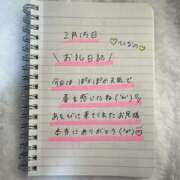 2月15日
ひなの♡
\ お礼日記 /
今日は ぽかぽか天気で
春を感じたね('ω')
あそびに来てくれたお兄様
本当にありがとう('ω')